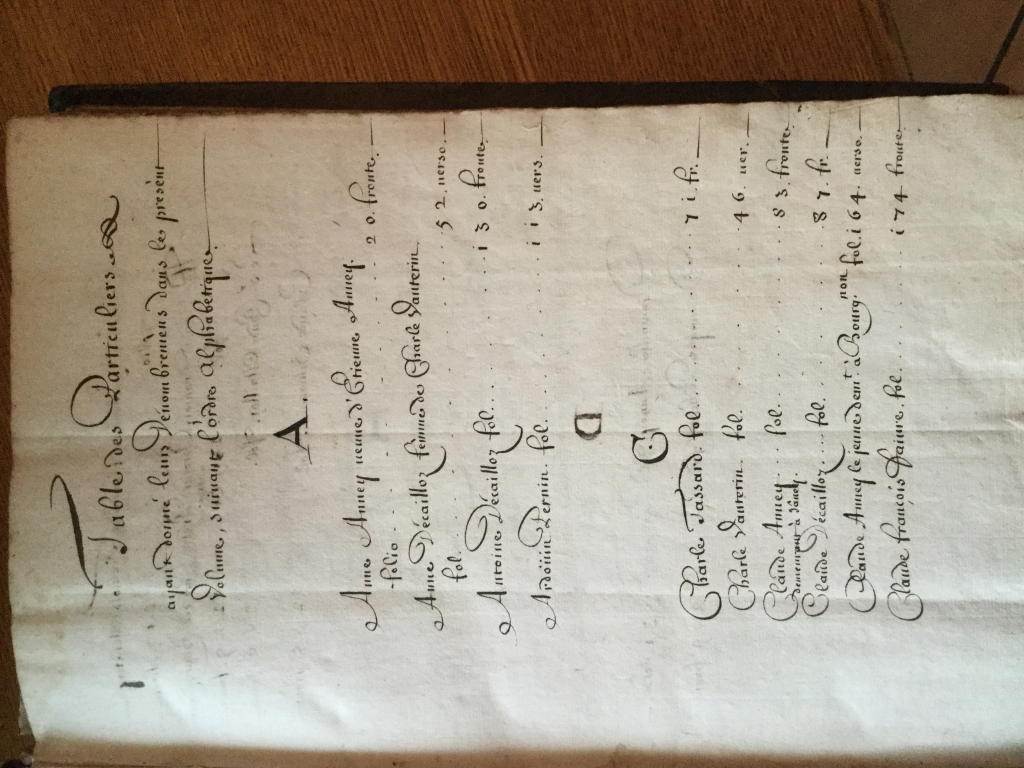 Table des Particuliers
ayant donné leur Dénombremens dans le présent
Volume, suivant l'ordre alphabétique.
A.
Anne Anney veuve d'Etienne Anney.
folio . . . . . . . . . . . . 20. fronte.
Anne Décailloz femme de Charle Vauterin
fol. . . . . . . . . . . . . 52. verso.
Antoine Décailloz fol. . . . . . . . i30. fronte.
Ardoüin Pernin fol. . . . . . . . . ii3. vers.
C
Charle Tassard fol. . . . . . . . . 7i. fr.
Charle Vauterin fol. . . . . . . . 46. ver.
Claude Anney fol. . . . . . . . 83. fronte.
demeurant à
Claude Décailloz . . . . fol. . . . . . . . 87. fr.
Claude Anney le jeune dem.t à Bourg. non fol. i64. verso.
Claude françois fol. . . . . . . . i74 fronte.